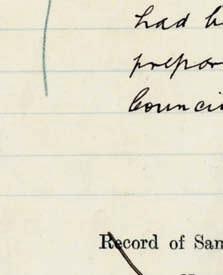 had b
prepar
Counci
Record of San